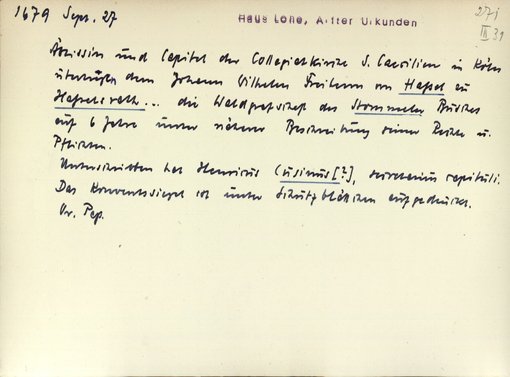 1679 Sept. 27
Haus Lohe, Akten Urkunden
271
III 31
Äbtissin und Capitel der Collegiatkirche S. Caecilien in Köln
übertragen dem Johann Wilhelm Freiherrn von Hassel zu
Hasselsrath... die Waldgrafschaft des Stommeler Busches
auf 6 Jahre unter näherer Beschreibung seiner Rechte u.
Pflichten.
Unterschrieben hat Henricus Cusinus[?], secretarius capituli.
Das Konventssiegel ist unter Schutzblättchen aufgedrückt.
Or. Pap.